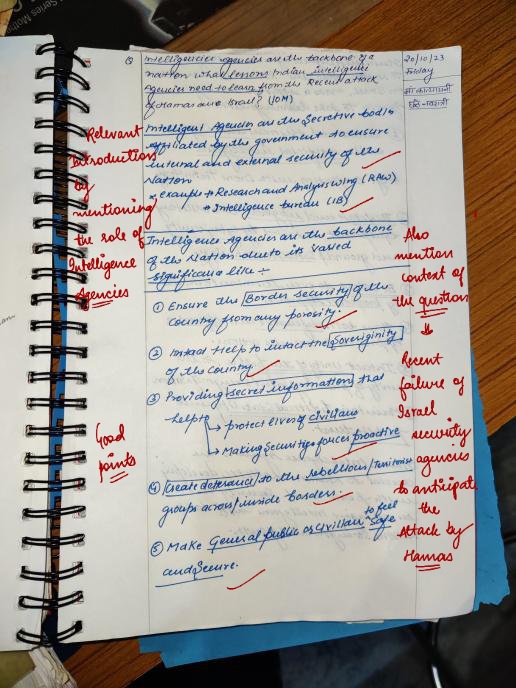 Q Intelligencies agencies are the backbone of a
nation what lessons Indian intelligence
Agencies need to learn from the Recent attack
of Hamas over Israel? (10M)
20/10/23
Friday
Intelligent Agencies are the Secretive bodies
affiliated by the government to ensure
internal and external security of the
Nation
example → Research and Analysis wing (RAW)
→ Intelligence bureau (IB)
Relevant
Introduction
by
mentioning
the role of
Intelligence
Agencies
Intelligence Agencies are the backbone
of the Nation due to its varied
significance like :-
① Ensure the Border security of the
country from any porosity.
② Intact Help to intact the Sovereiginity
of the country
③ Providing secret information that
helps
→ protect lives of civilians
→ Making Security forces proactive
④ Create deterrance to the rebellious/Terrorist
groups across/inside borders.
⑤ Make General public or Civilian to feel safe
and Secure.
Good
points
Also
mention
content of
the question
Recent
failure of
Israel
security
agencies
to anticipate
the
Attack by
Hamas